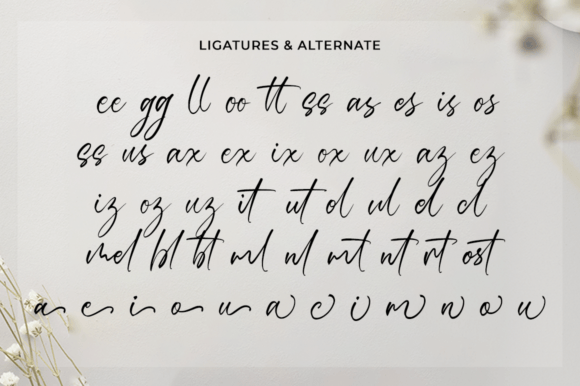 LIGATURES & ALTERNATE
ee gg ll oo tt ss as es is os
ss us ax ex ix ox ux az ez
iz oz uz it ut ol ul el cl
mel bl bt ml nl mt nt rt ost
a e i o u a c i m n o w